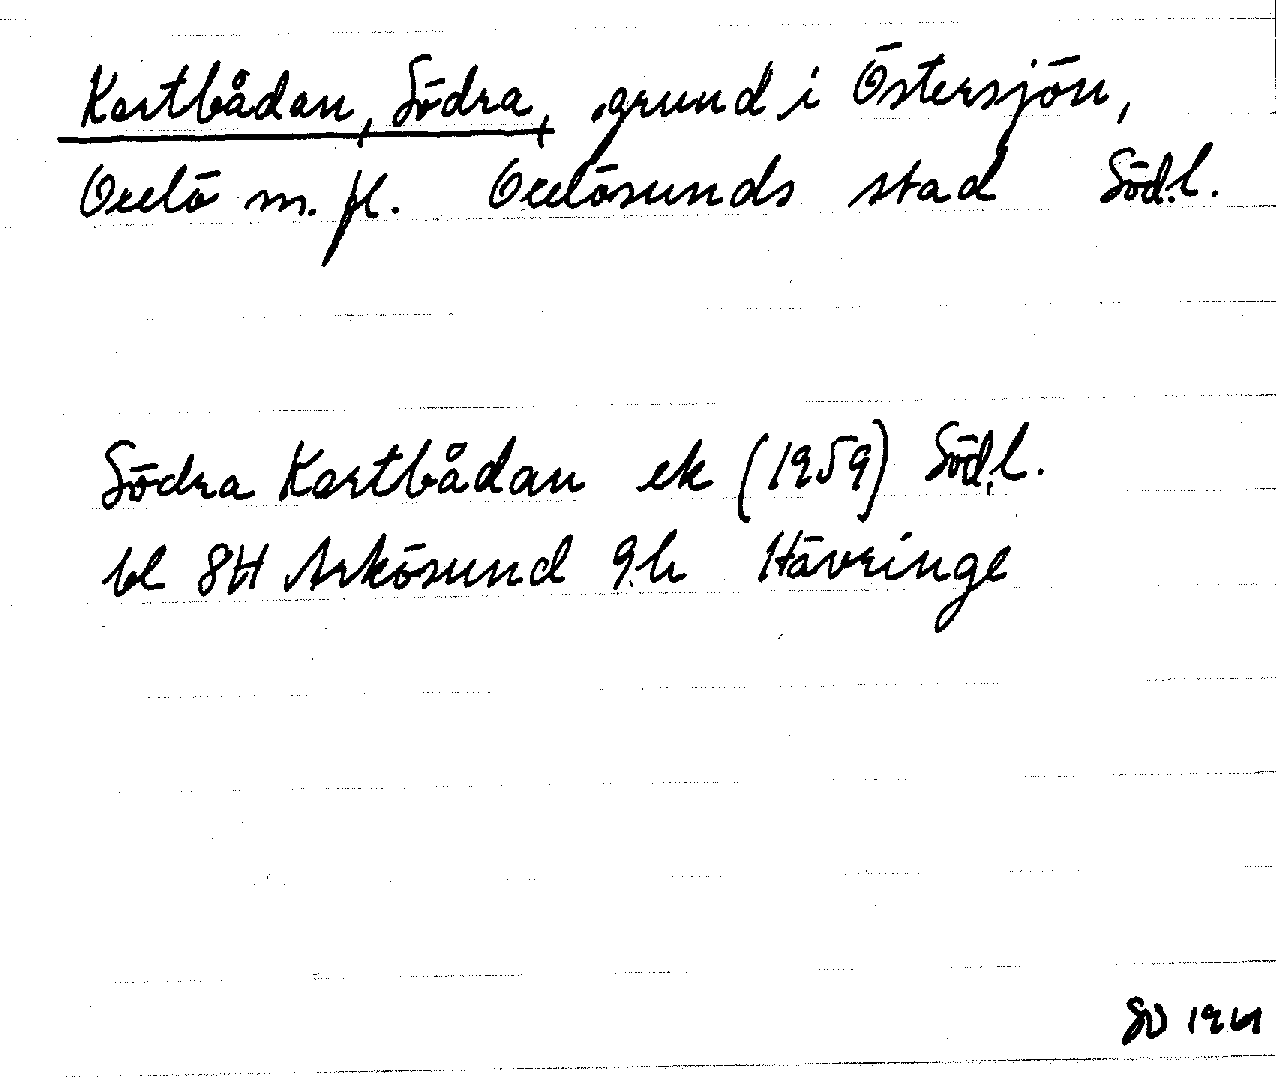 Kartbådan, Södra, grund i Östersjön,
Oxelö m. fl. Oxelösunds stad Södl.
Södra Kartbådan ek (1959) Södl.
bl 8H Arkösund 9h Hävringe